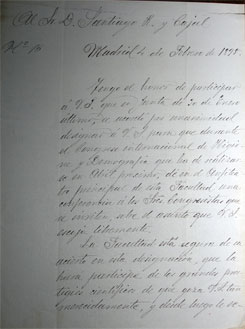 Al Sr. D. Santiago R. y Cajal
Madrid 4 de Febrero de 1898.
Tengo el honor de participar
á V.S. que en Junta de 30 de Enero
último, se acordó por unanimidad
designar á V.S. para que durante
el Congreso internacional de Higiene
y Demografía que ha de celebrarse
en Abril próximo, dé en el Anfiteatro
principal de esta Facultad una
conferencia á los Sres Congresistas que
se inscriban sobre el asunto que V.S.
escoja libremente.
La Facultad está segura de su
acierto en esta designación, que la
hará partícipe de los grandes prestigios
científicos de que goza V.S. tan
merecidamente, y desde luego le